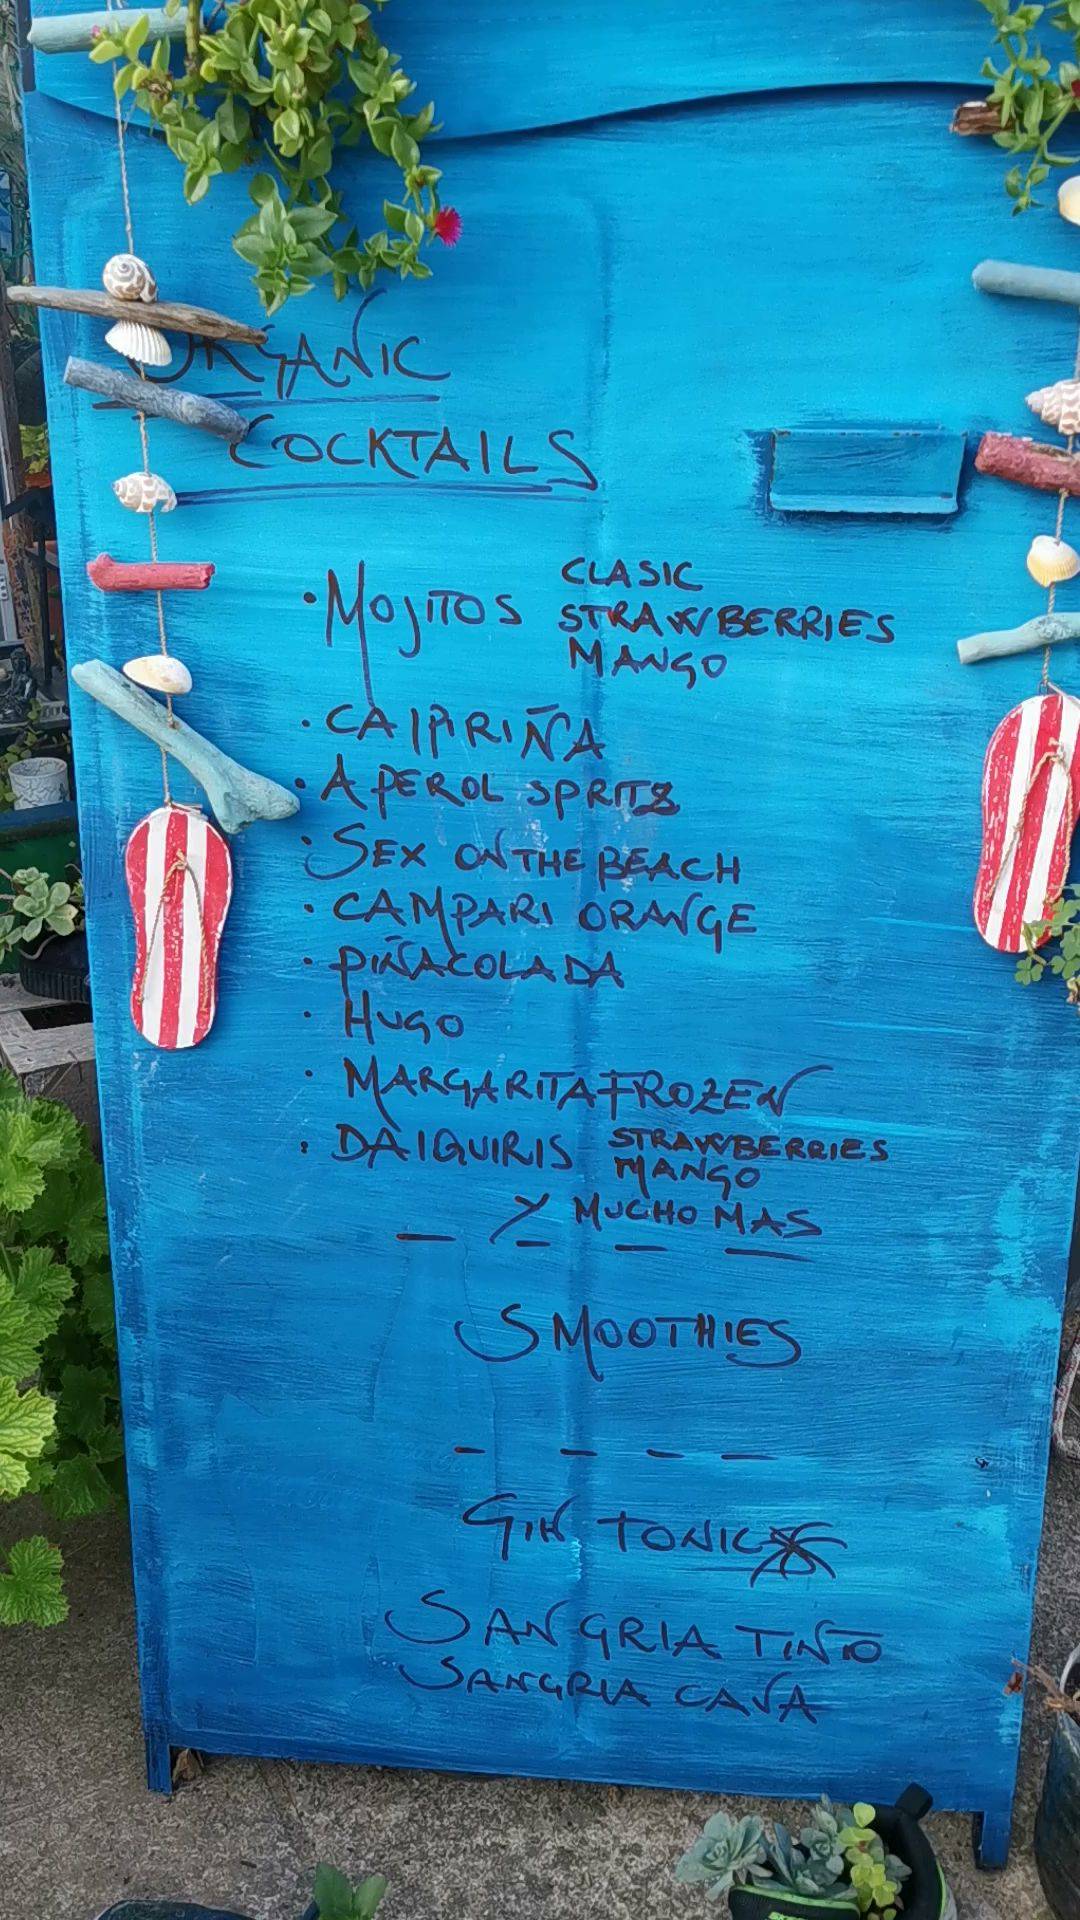 ORGANIC
COCKTAILS
• MOJITOS CLASIC
STRAWBERRIES
MANGO
• CAIPIRIÑA
• APEROL SPRITZ
• SEX ON THE BEACH
• CAMPARI ORANGE
• PIÑACOLADA
• HUGO
• MARGARITA FROZEN
• DAIQUIRIS STRAWBERRIES
MANGO
Y MUCHO MAS
SMOOTHIES
GIN TONICS
SANGRIA TINTO
SANGRIA CAVA